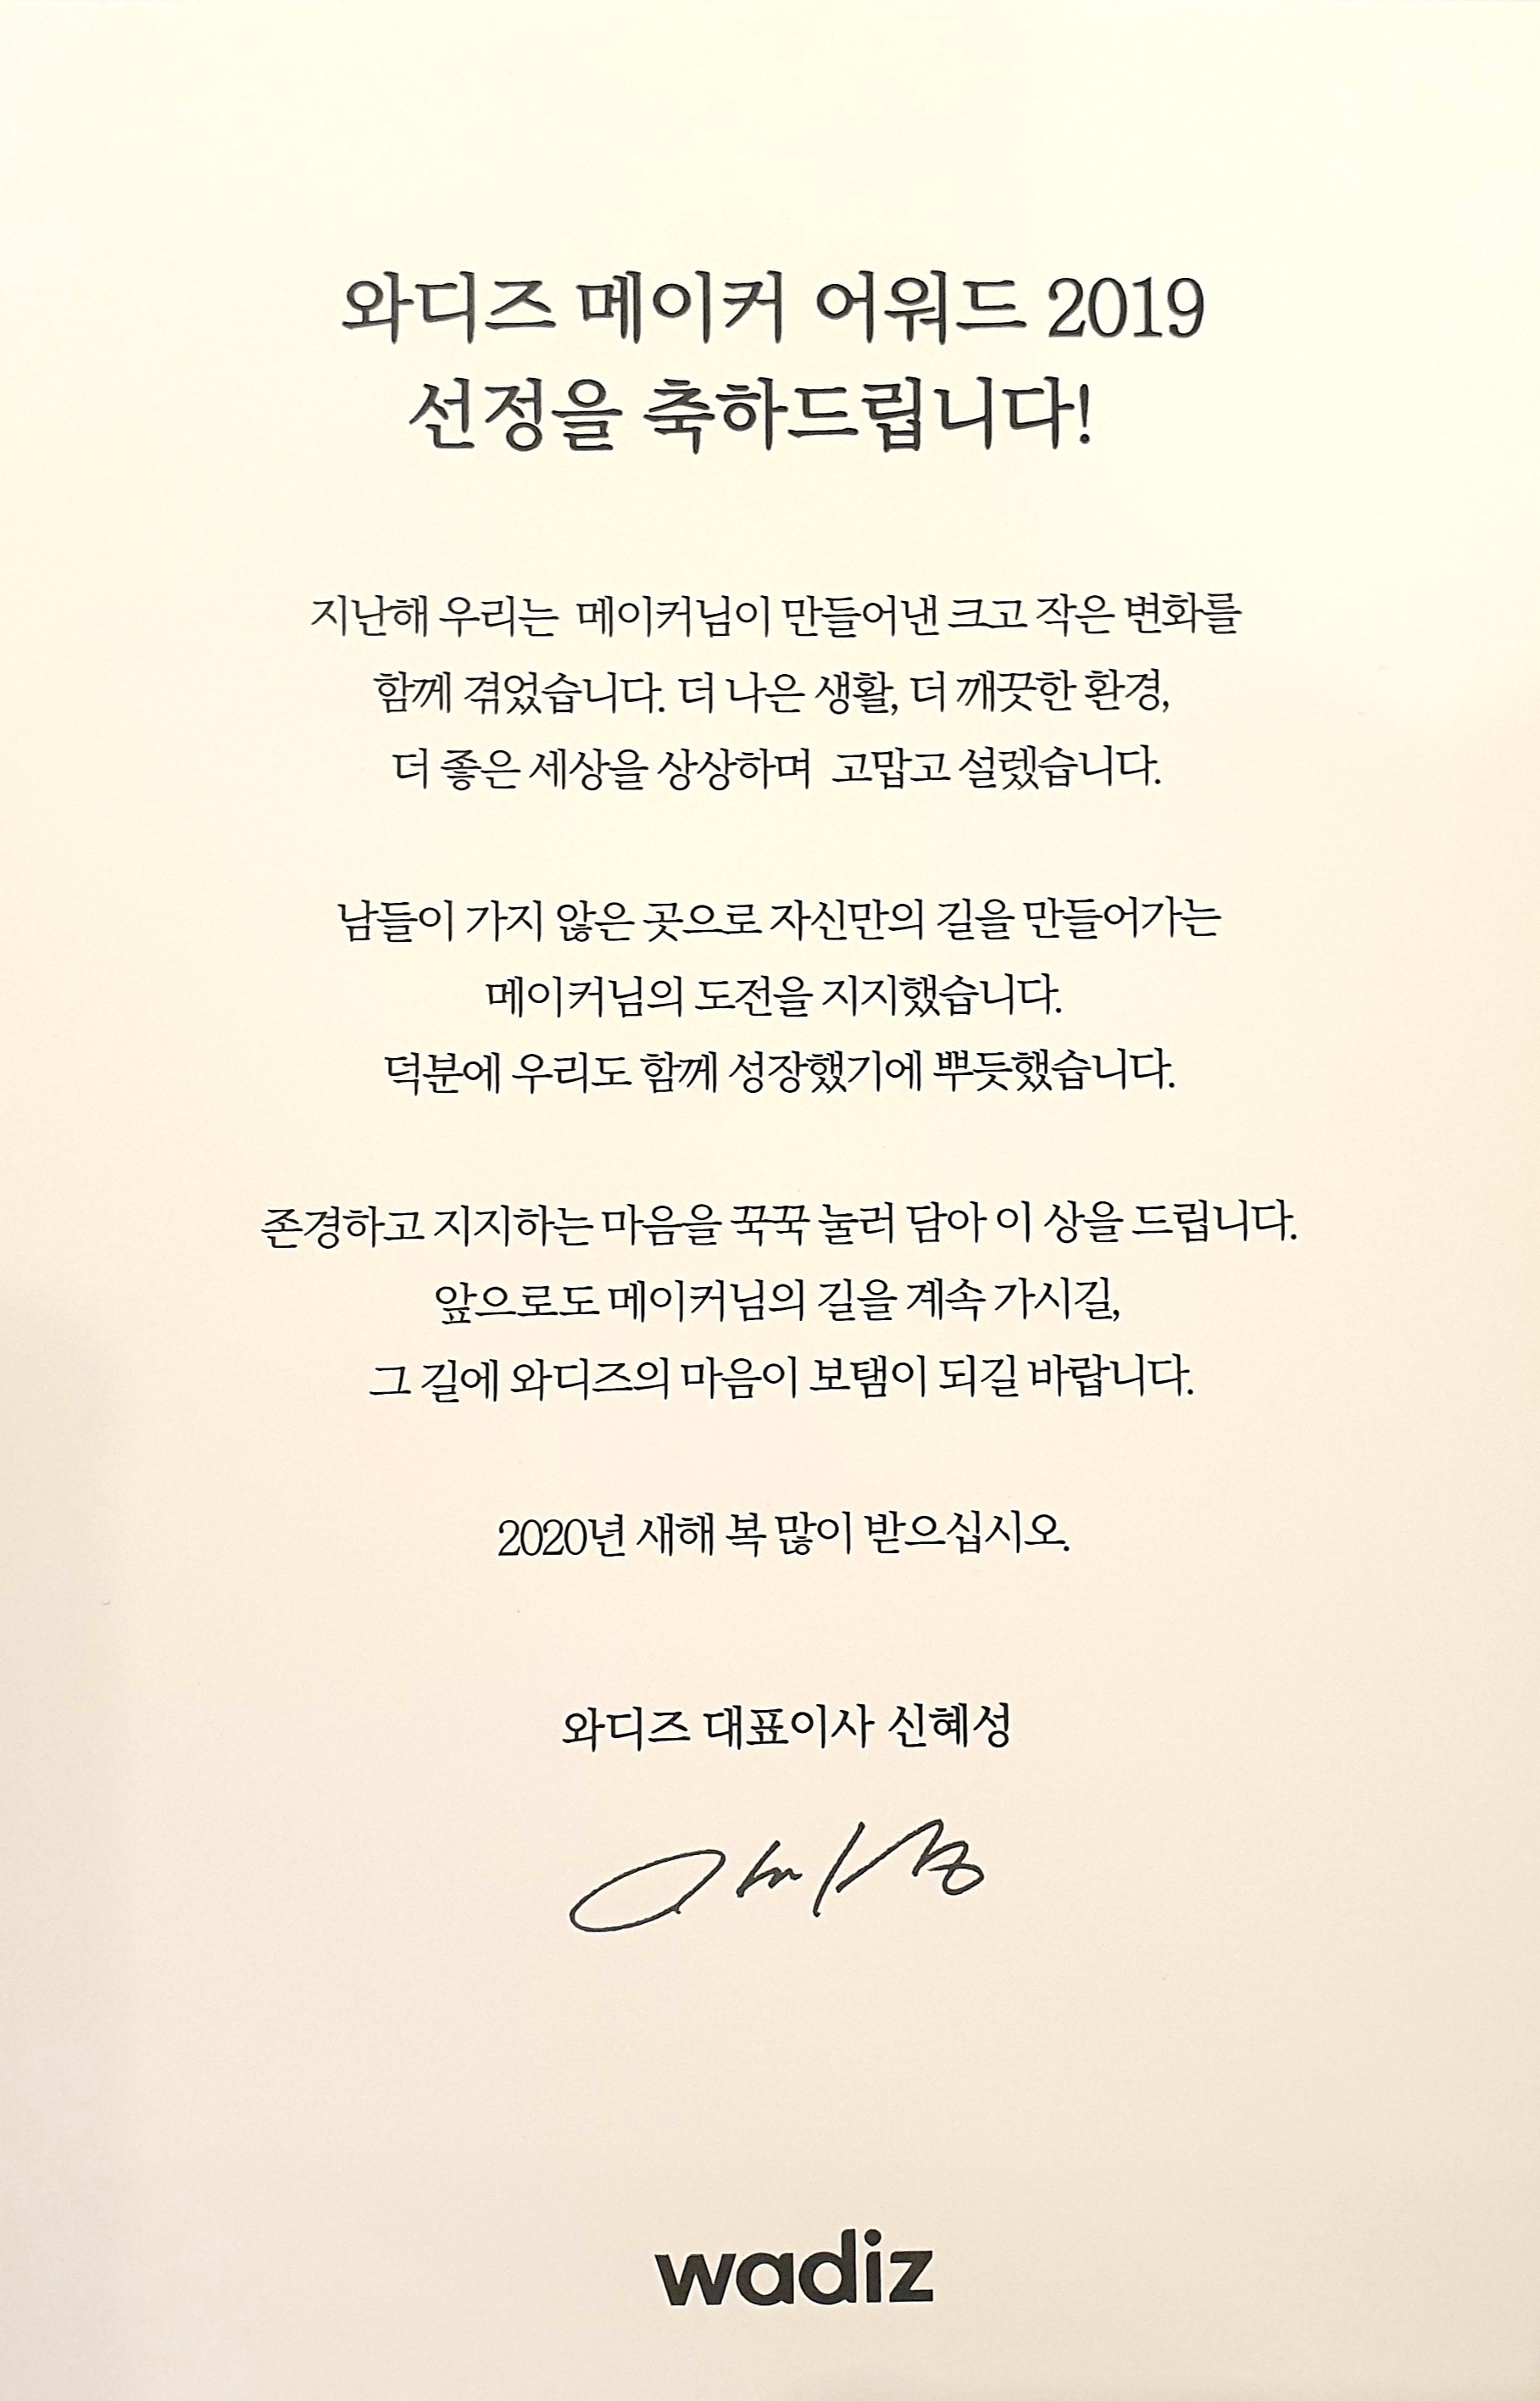 와디즈 메이커 어워드 2019
선정을 축하드립니다!
지난해 우리는 메이커님이 만들어낸 크고 작은 변화를
함께 겪었습니다. 더 나은 생활, 더 깨끗한 환경,
더 좋은 세상을 상상하며 고맙고 설렜습니다.
남들이 가지 않은 곳으로 자신만의 길을 만들어가는
메이커님의 도전을 지지했습니다.
덕분에 우리도 함께 성장했기에 뿌듯했습니다.
존경하고 지지하는 마음을 꾹꾹 눌러 담아 이 상을 드립니다.
앞으로도 메이커님의 길을 계속 가시길,
그 길에 와디즈의 마음이 보탬이 되길 바랍니다.
2020년 새해 복 많이 받으십시오.
와디즈 대표이사 신혜성
wadiz